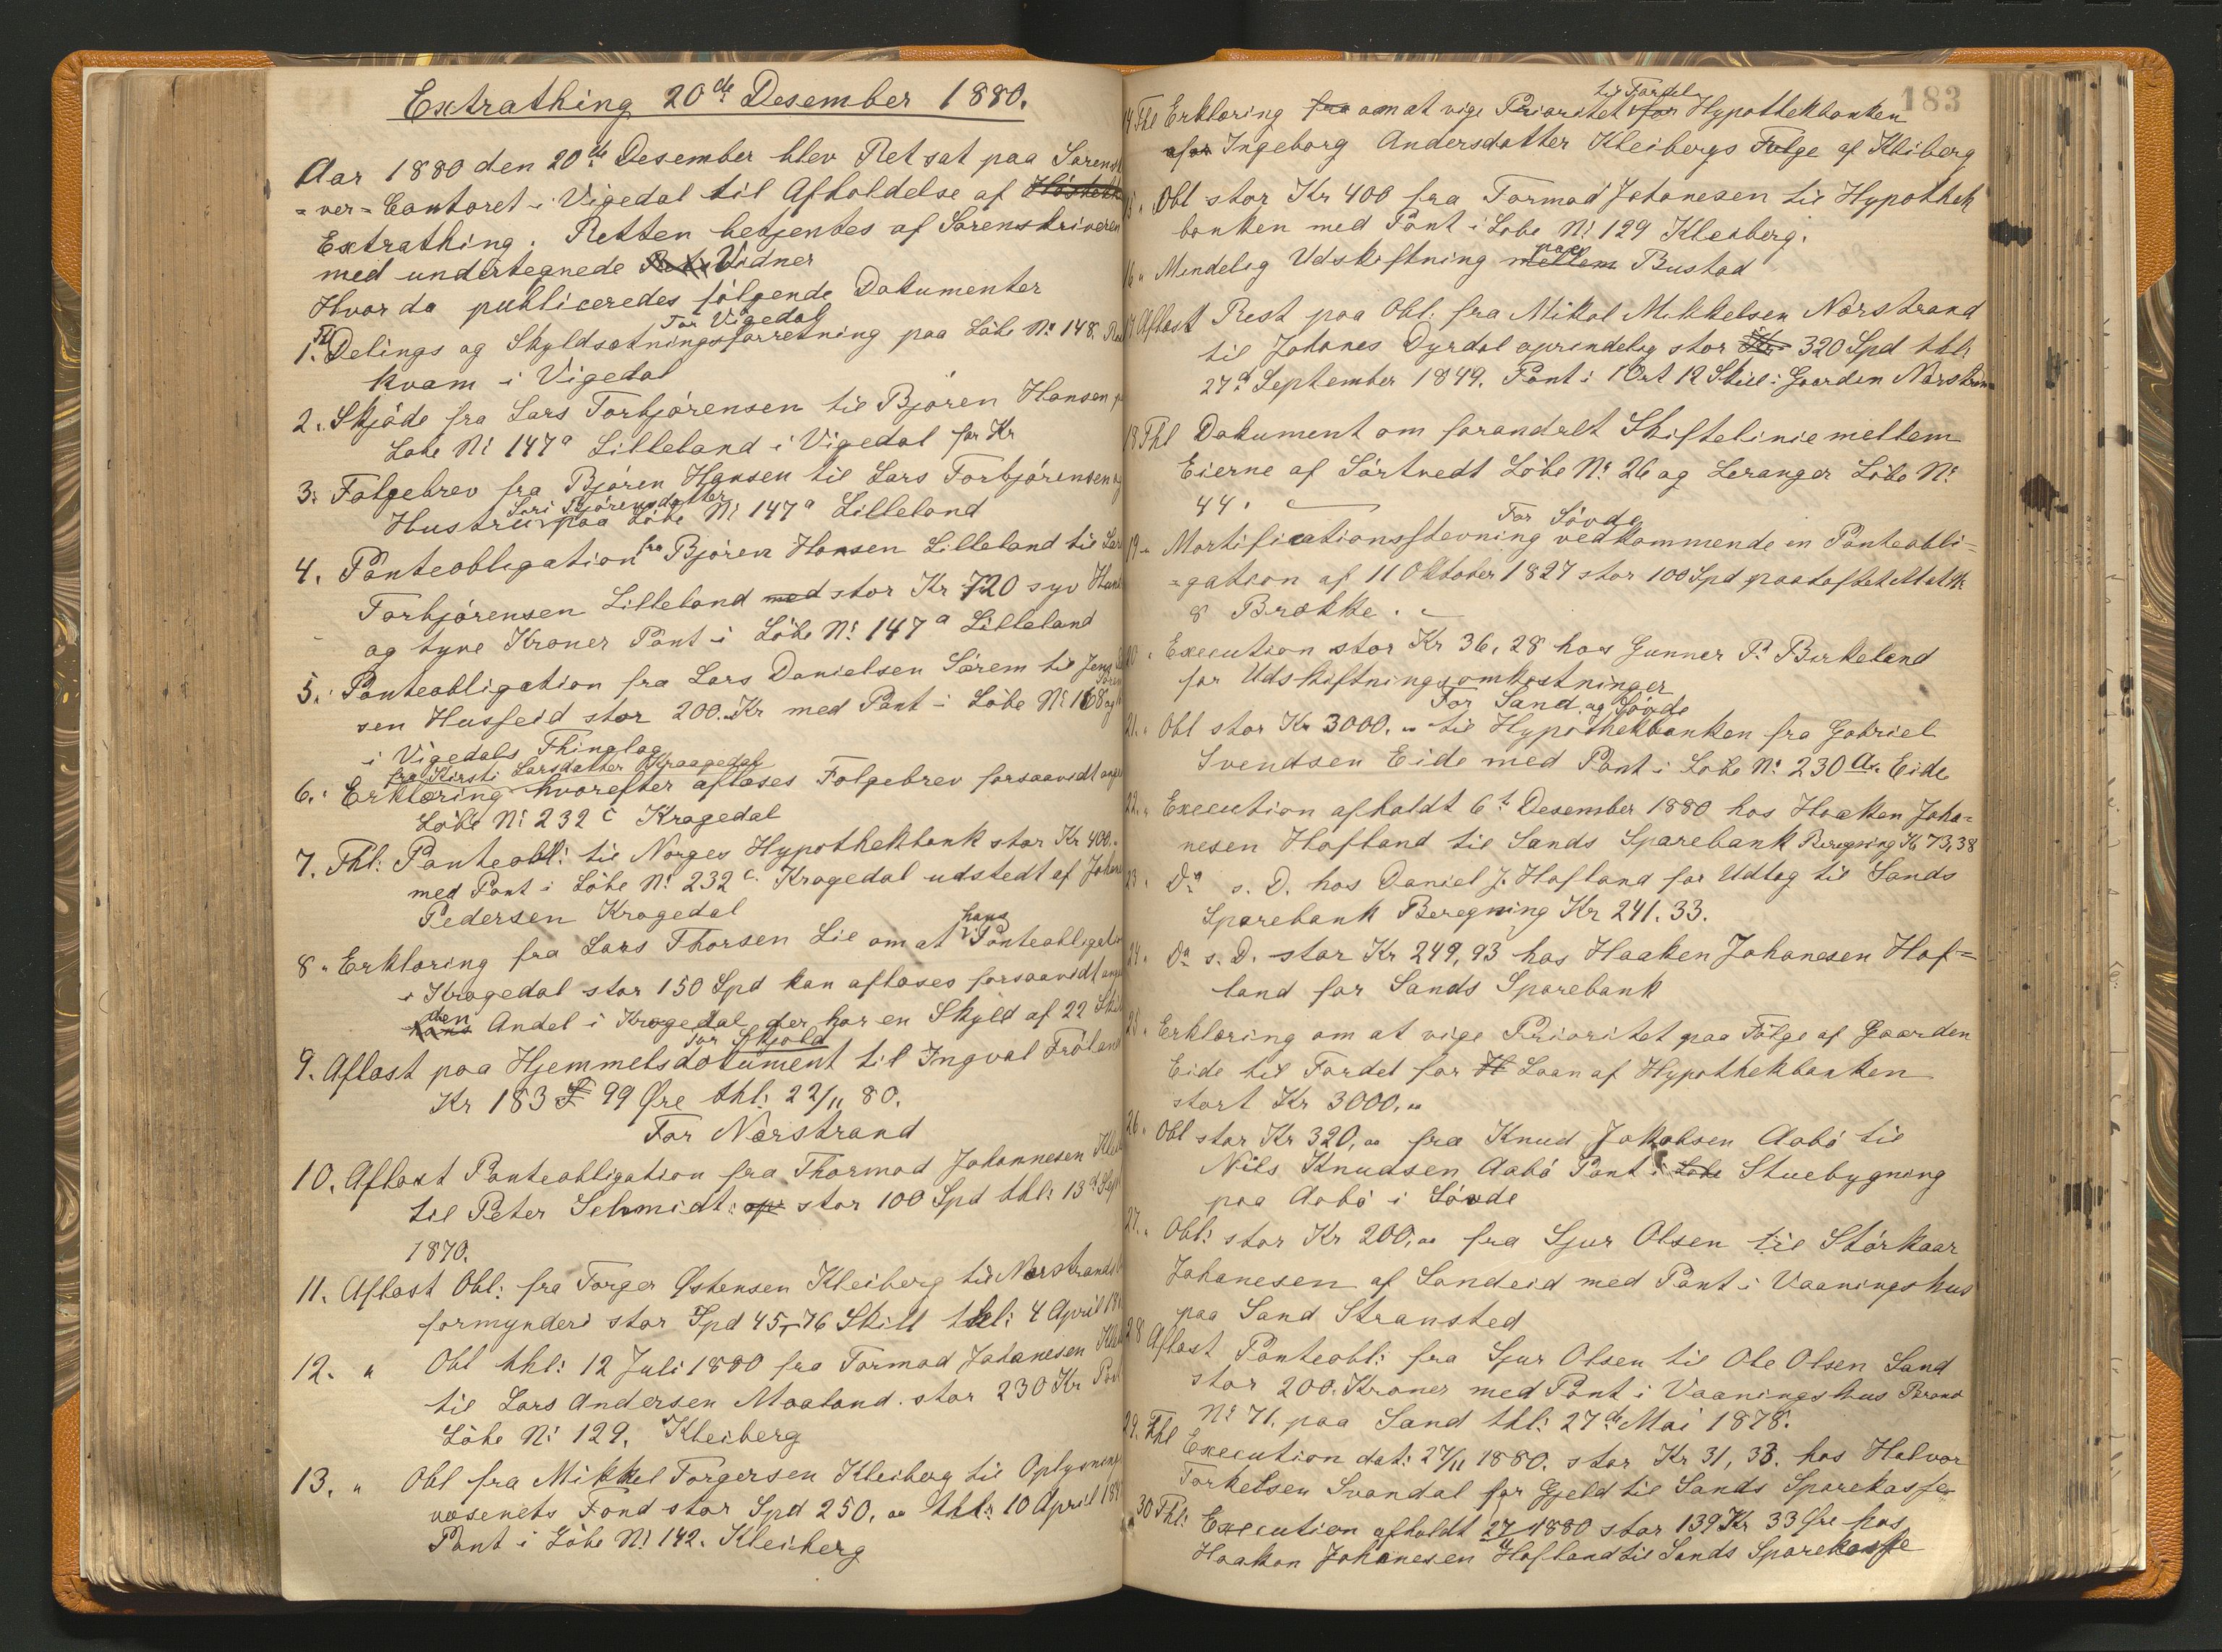 Extrathing 20de Desember 1880.
Aar 1880 den 20de Desember blev Ret sat paa Sorenskri
=ver=Contoret i Vigedal til Afholdelse af
Extrathing. Retten betjentes af Sorenskriveren
med undertegnede Vidner
Hvor da publiceredes følgende Dokumenter
For Vigedal
1. Thl Delings og Skyldsætningsforretning paa Løbe No 148.
Kvam i Vigedal
2. Skjøde fra Lars Torbjørensen til Bjøren Hansen
Løbe No 147a Lilleland i Vigedal for Kr
3. Følgebrev fra Bjøren Hansen til Lars Torbjørensen og
Hustru Siri Bjørensdatter paa Løbe No 147a Lilleland
4. Panteobligation fra Bjøren Hansen Lilleland til Lars
Torbjørensen Lilleland med stor Kr 720 syv Hun
og tyve Kroner Pant i Løbe No 147a Lilleland
5. Panteobligation fra Lars Danielsen Sørem til Jens
sen Husfeid stor 200. Kr med Pant i Løbe No 168 og
i Vigedals Thinglag
fra Kirsti Larsdatter Kraagedal
6. Erklæring hvorefter afløses Følgebrev forsaavidt ang
Løbe No 232 c Kragedal
7. Thl: Panteobl: til Norges Hypothekbank stor Kr 400.
med Pant i Løbe No 232 c. Kragedal udstedt af Johan
Pedersen Kragedal
8 " Erklæring fra Lars Thorsen Lie om at hans Panteobligation
i Kragedal stor 150 Spd kan afløses forsaavidt ang
den hans Andel i Kragedal der har en Skyld af 22 Skil
For Skjold
9. Aflæst paa Hjemmelsdokument til Ingval Frøland
Kr 183 99 Øre thl: 22/11 80.
For Nærstrand
10. Aflæst Panteobligation fra Thormod Johannesen Klei
til Peter Schmidt: opr stor 100 Spd thl: 13d Sept
1870.
11. Aflæst Obl: fra Torger Østensen Kleiberg til Nærstrands
formynderi stor Spd 45,-76 Skill thl: 4 April 18
12. " Obl thl: 12 Juli 1880 fra Tormod Johanesen Klei
til Lars Andersen Maaland. stor 230 Kr Pant
Løbe No 129. Kleiberg
13. " Obl fra Mikkel Torgersen Kleiberg til Oplysnings
væsenets Fond stor Spd 250, " thl: 10 April 18
Pant i Løbe No 142. Kleiberg
183
14 Thl Erklæring fra om at vige Prioritet til Fordel for Hypothekbanken
afor Ingeborg Andersdatter Kleibergs Følge af Kleiberg
15 " Obl stor Kr 400 fra Tormod Johanesen til Hypothek
banken med Pant i Løbe No 129 Kleiberg.
16 " Mindelig Udskiftning mellem paa Bustad
17 Aflæst Rest paa Obl: fra Mikal Mikkelsen Nærstrand
til Johanes Dyrdal oprindelig stor Kr 320 Spd thl:
27de September 1849. Pant i 1 Ort 12 Skill: Gaarden Nærstran
18 Thl Dokument om forandret Skiftelinie mellem
Eierne af Sørtvedt Løbe No 26 og Leranger Løbe No
44.
For Søvde
19 " Mortificationsstevning vedkommende en Panteobli=
=gation af 11 Oktober 1827 stor 100 Spd Mat No
8 Brække.
20 " Execution stor Kr 36,28 hos Gunner P. Birkeland
for Udskiftningsomkostninger
For Sand og Søvde
21. " Obl stor Kr 3000. " til Hypothekbanken fra Gabriel
Svendsen Eide med Pant i Løbe No 230 a. Eide
22. " Execution afholdt 6te Desember 1880 hos Haaken Joha=
nesen Hofland til Sands Sparebank Beregning Kr 73,38
23. " Do s. D. hos Daniel J. Hofland for Udlæg til Sands
Sparebank Beregning Kr 241. 33.
24. " Do s. D. stor Kr 249,93 hos Haaken Johanesen Hof=
land for Sands Sparebank
25. " Erklæring om at vige Prioritet paa Følge af Gaarden
Eide til Fordel for H Laan af Hypothekbanken
stort Kr 3000. "
26. " Obl stor Kr 320, " fra Knud Jakobsen Aabø til
Nils Knudsen Aabø Pant i Løbe Stuebygning
paa Aabø i Søvde
27. " Obl: stor Kr 200, " fra Sjur Olsen til Størkaar
Johanesen af Sandeid med Pant i Vaaningshus
paa Sand Stransted
28 Aflæst Panteobl: fra Sjur Olsen til Ole Olsen Sand
stor 200. Kroner med Pant i Vaaningshus Brand
No 71. paa Sand thl: 27de Mai 1878.
29. Thl Execution dat: 27/11 1880. stor Kr 31, 33. hos Halvor
Torkelsen Svandal for Gjeld til Sands Sparekasse
30 Thl: Execution afholdt 27/11 1880 stor 139 Kr 33 Øre hos
Haakon Johanesen Hofland til Sands Sparekasse